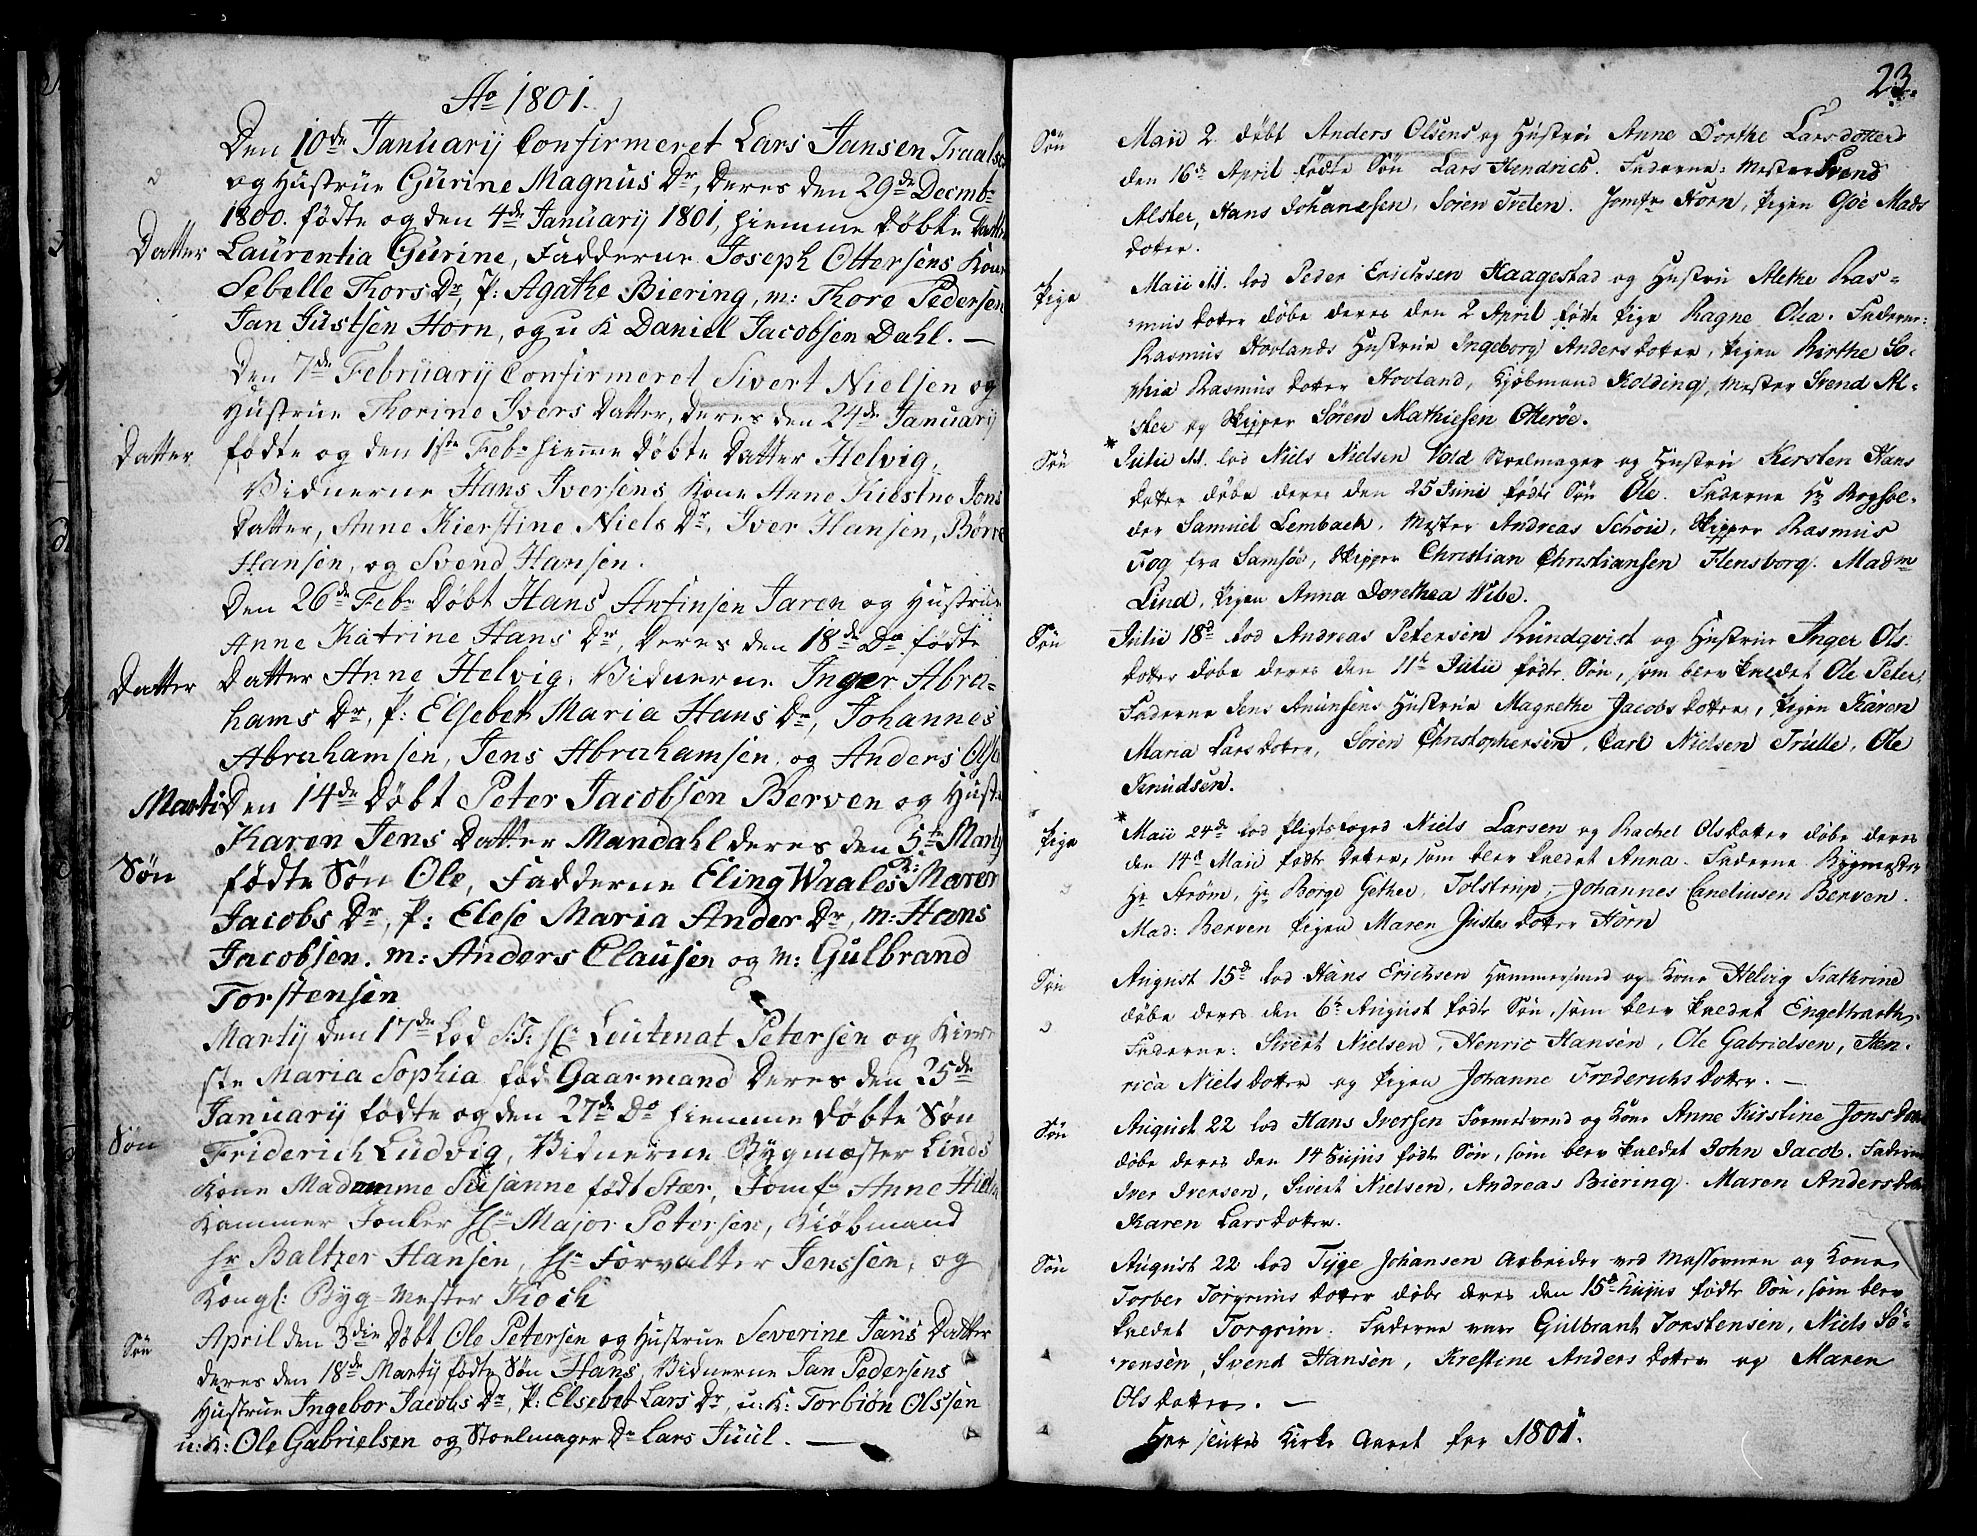 Ao 1801.
Den 10de Januarij Confirmeret Lars Jansen
og Hustrue Gurine Magnus Dr, deres den 29de Decmb.
1800. fødte og den 4de Januarij 1801, hiemme døbte
Datter Laurentia Gurine, Fadderne Joseph Ottersens Kone
Sebelle Thors Dr, P: Agathe Biering, m: Thore Pedersen
Jan Justsen Horn, og u K Daniel Jacobsen Dahl. —
Den 7de Februarij Confirmeret Sivert Nielsen og
Hustrue Thorine Ivers Datter, deres den 24de Januarij
Datter fødte og den 1ste Feb. hiemme døbte Datter Helvig,
Vidnerne Hans Iversens Kone Anne Kiestne Jons
Datter, Anne Kierstine Niels Dr, Iver Hansen, Børre
Hansen, og Svend Hansen.
Den 26de Feb. døbt Hans Anfinsen Jaren og Hustrue
Anne Katrine Hans Dr, deres den 18de Do fødte
Datter Datter Anne Helvig, Vidnerne Inger Abra-
hams Dr, P: Elsebet Maria Hans Dr, Johannes
Abrahamsen, Jens Abrahamsen, og Anders Olsen
Marti Den 14de døbt Peter Jacobsen Berven og Hust.
Karen Jens Datter Mandahl deres den 5te Martij
Søn fødte Søn Ole, Fadderne Eling Waales K: Maren
Jacobs Dr, P: Elese Maria Ander Dr, m: Hans
Jacobsen. m: Anders Clausen og m: Gulbrand
Torstensen
Martij den 17de Lod S:T: Hr Leutenat Petersen og
ste Maria Sophia fød Gaarmand deres den 25de
Januarij fødte og den 27de Do hiemme døbte Søn
Søn Friderich Ludvig, Vidnerne Bygmæster Linds
Kone Madamme Susanne født Stær, Jomf. Anne
Kammer Jonker Hr Major Petersen, Kiøbmand
Hr Baltzer Hansen, Hr Forvalter Jenssen, og
Kongl: Byg-Mester Koch
April den 3die døbt Ole Petersen og Hustrue Severine Jans Datter
Søn deres den 18de Martij fødte Søn Hans, Vidnerne Jan Pedersens
Hustrue Ingebor Jacobs Dr, P: Elsebet Lars Dr, u:K: Torbiøn Olssen
u:K: Ole Gabrielsen og Stoelmager Dr Lars Juul. —
23.
Søn Maii 2. døbt Anders Olsens og Hustrue Anne Dorthe Larsdotter
den 16d April fødte Søn Lars Hendrich. Faderne: Mester Svend
Alster, Hans Johanesen, Søren Tveten. Jomfr Horn, Pigen Gøe Mads
doter.
Maii 11. lod Peder Erichsen Haagestad og Hustru Alethe Ras-
Pige mus doter døbe deres den 2 April fødte Pige Ragne Olea. Faderne:
Rasmus Hovlands Hustrue Ingeborg Anders doter, Pigen Birthe So-
phia Rasmus doter Hovland, Kjøbmand Kolding, Mester Svend Al-
ster og Skipper Søren Mathiesen Oterøe.
*
Søn Julii 11. lod Niels Nielsen Vold Stoelmager og Hustru Kersten Hans
doter døbe deres den 25 Juni fødte Søn Ole. Faderne Hr Boghol-
der Samuel Lembach, Mester Andreas Schøie, Skipper Rasmus
Fog fra Samsøe, Skipper Christian Christiansen Flensborg. Madm
Lind, Pigen Anna Dorethea Wibe.
Søn Julii 18d lod Andreas Petersen Rundqvist og Hustrue Inger Ols
doter døbe deres den 11t Julii fødte Søn, som blev kaldet Ole Peter,
Faderne Jens Anunsens Hustrue Magnethe Jacobs doter, Pigen Karen
Maria Lars doter, Søren Christophersen, Carl Nielsen Trulle, Ole
Knudsen.
*
Pige Maii 24d lod Pligtsfoged Niels Larsen og Rachel Olsdoter døbe deres
den 14d Maii fødte doter, som blev kaldet Anna. Faderne Bygmester
Hr Strøm, Hr Borge Gether, Tolstrup, Johannes Corneliusen Berven.
Mad: Berven Pigen Maren Justes doter Horn
Søn August 15d lod Hans Erichsen Hammersmed og Kone Helvig Kathrine
døbe deres den 6t August fødte Søn, som blev kaldet Engelbrecth.
Faderne: Sivert Nielsen, Henric Hansen, Ole Gabrielsen, Hen-
rica Nielsdotter og Pigen Johanne Frederichs doter. —
Søn August 22 lod Hans Iversen Formersvend og Kone Anne Kirstine Jons
døbe deres den 14 Hujus fødte Søn, som blev kaldet John Jacob. Faderne
Iver Iversen, Sivert Nielsen, Andreas Biering. Maren Andersdoter
Karen Lars doter.
Søn August 22 lod Tyge Johansen Arbeider ved Massovnen og Kone
Torber Torgrims doter døbe deres den 15d Hujus fødte Søn, som blev
kaldet Torgrim. Faderne var Gulbrant Torstensen, Niels Sø-
rensen, Svend Hansen, Krestine Anders doter og Maren
Ols doter. —
Her sluttes Kirke Aaret for 1801.